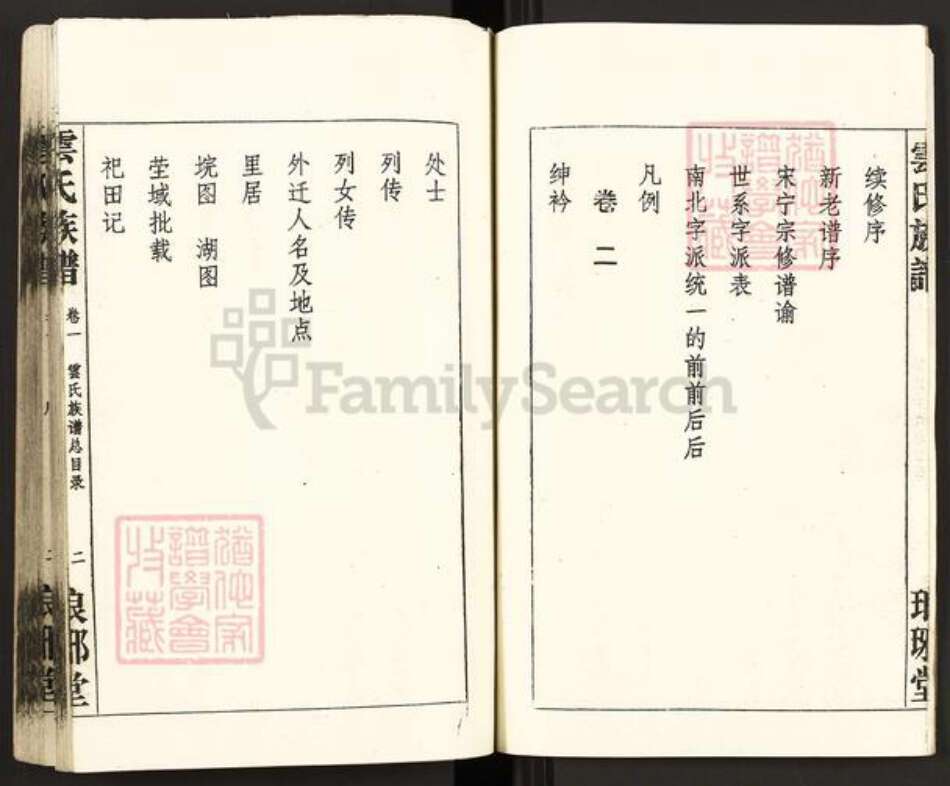 雲氏族譜
琅琊堂
续修序
新老谱序
宋宁宗修谱谕
世系字派表
南北字派统一的前前后后
凡例
卷二
绅衿
处士
列传
列女传
外迁人名及地点
里居
垸图 湖图
茔域批载
祀田记
雲氏族譜
卷一
雲氏族谱总目录
二
琅邪堂
猶他家
譜學會
收藏
猶他家
譜學會
收藏
FamilySearch